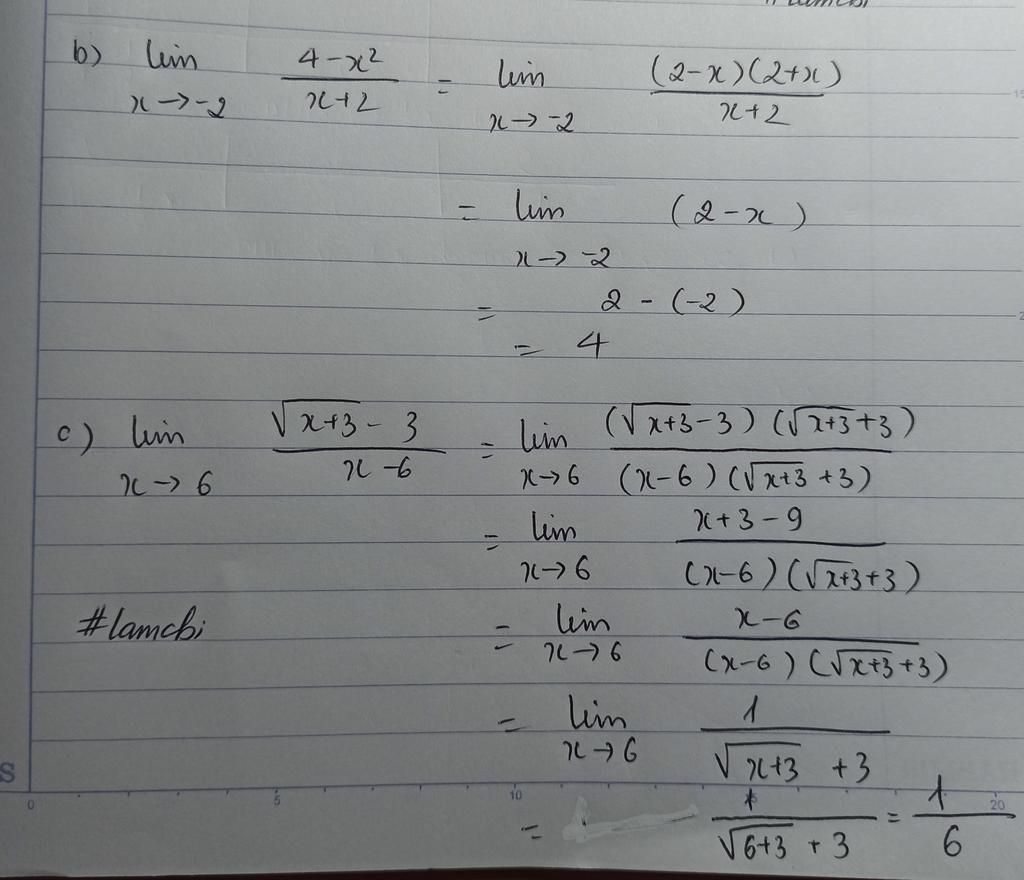 b) lim x→-2 (4-x²)/(x+2) = lim x→-2 ((2-x)(2+x))/(x+2)
= lim x→-2 (2-x)
= 2 - (-2)
= 4
c) lim x→6 (√(x+3) - 3)/(x-6) = lim x→6 ((√(x+3) - 3)(√(x+3) + 3))/((x-6)(√(x+3) + 3))
= lim x→6 (x+3-9)/((x-6)(√(x+3) + 3))
#lamcbi
= lim x→6 (x-6)/((x-6)(√(x+3) + 3))
= lim x→6 1/(√(x+3) + 3)
S
0 5 10 20
= 1/(√(6+3) + 3) = 1/6